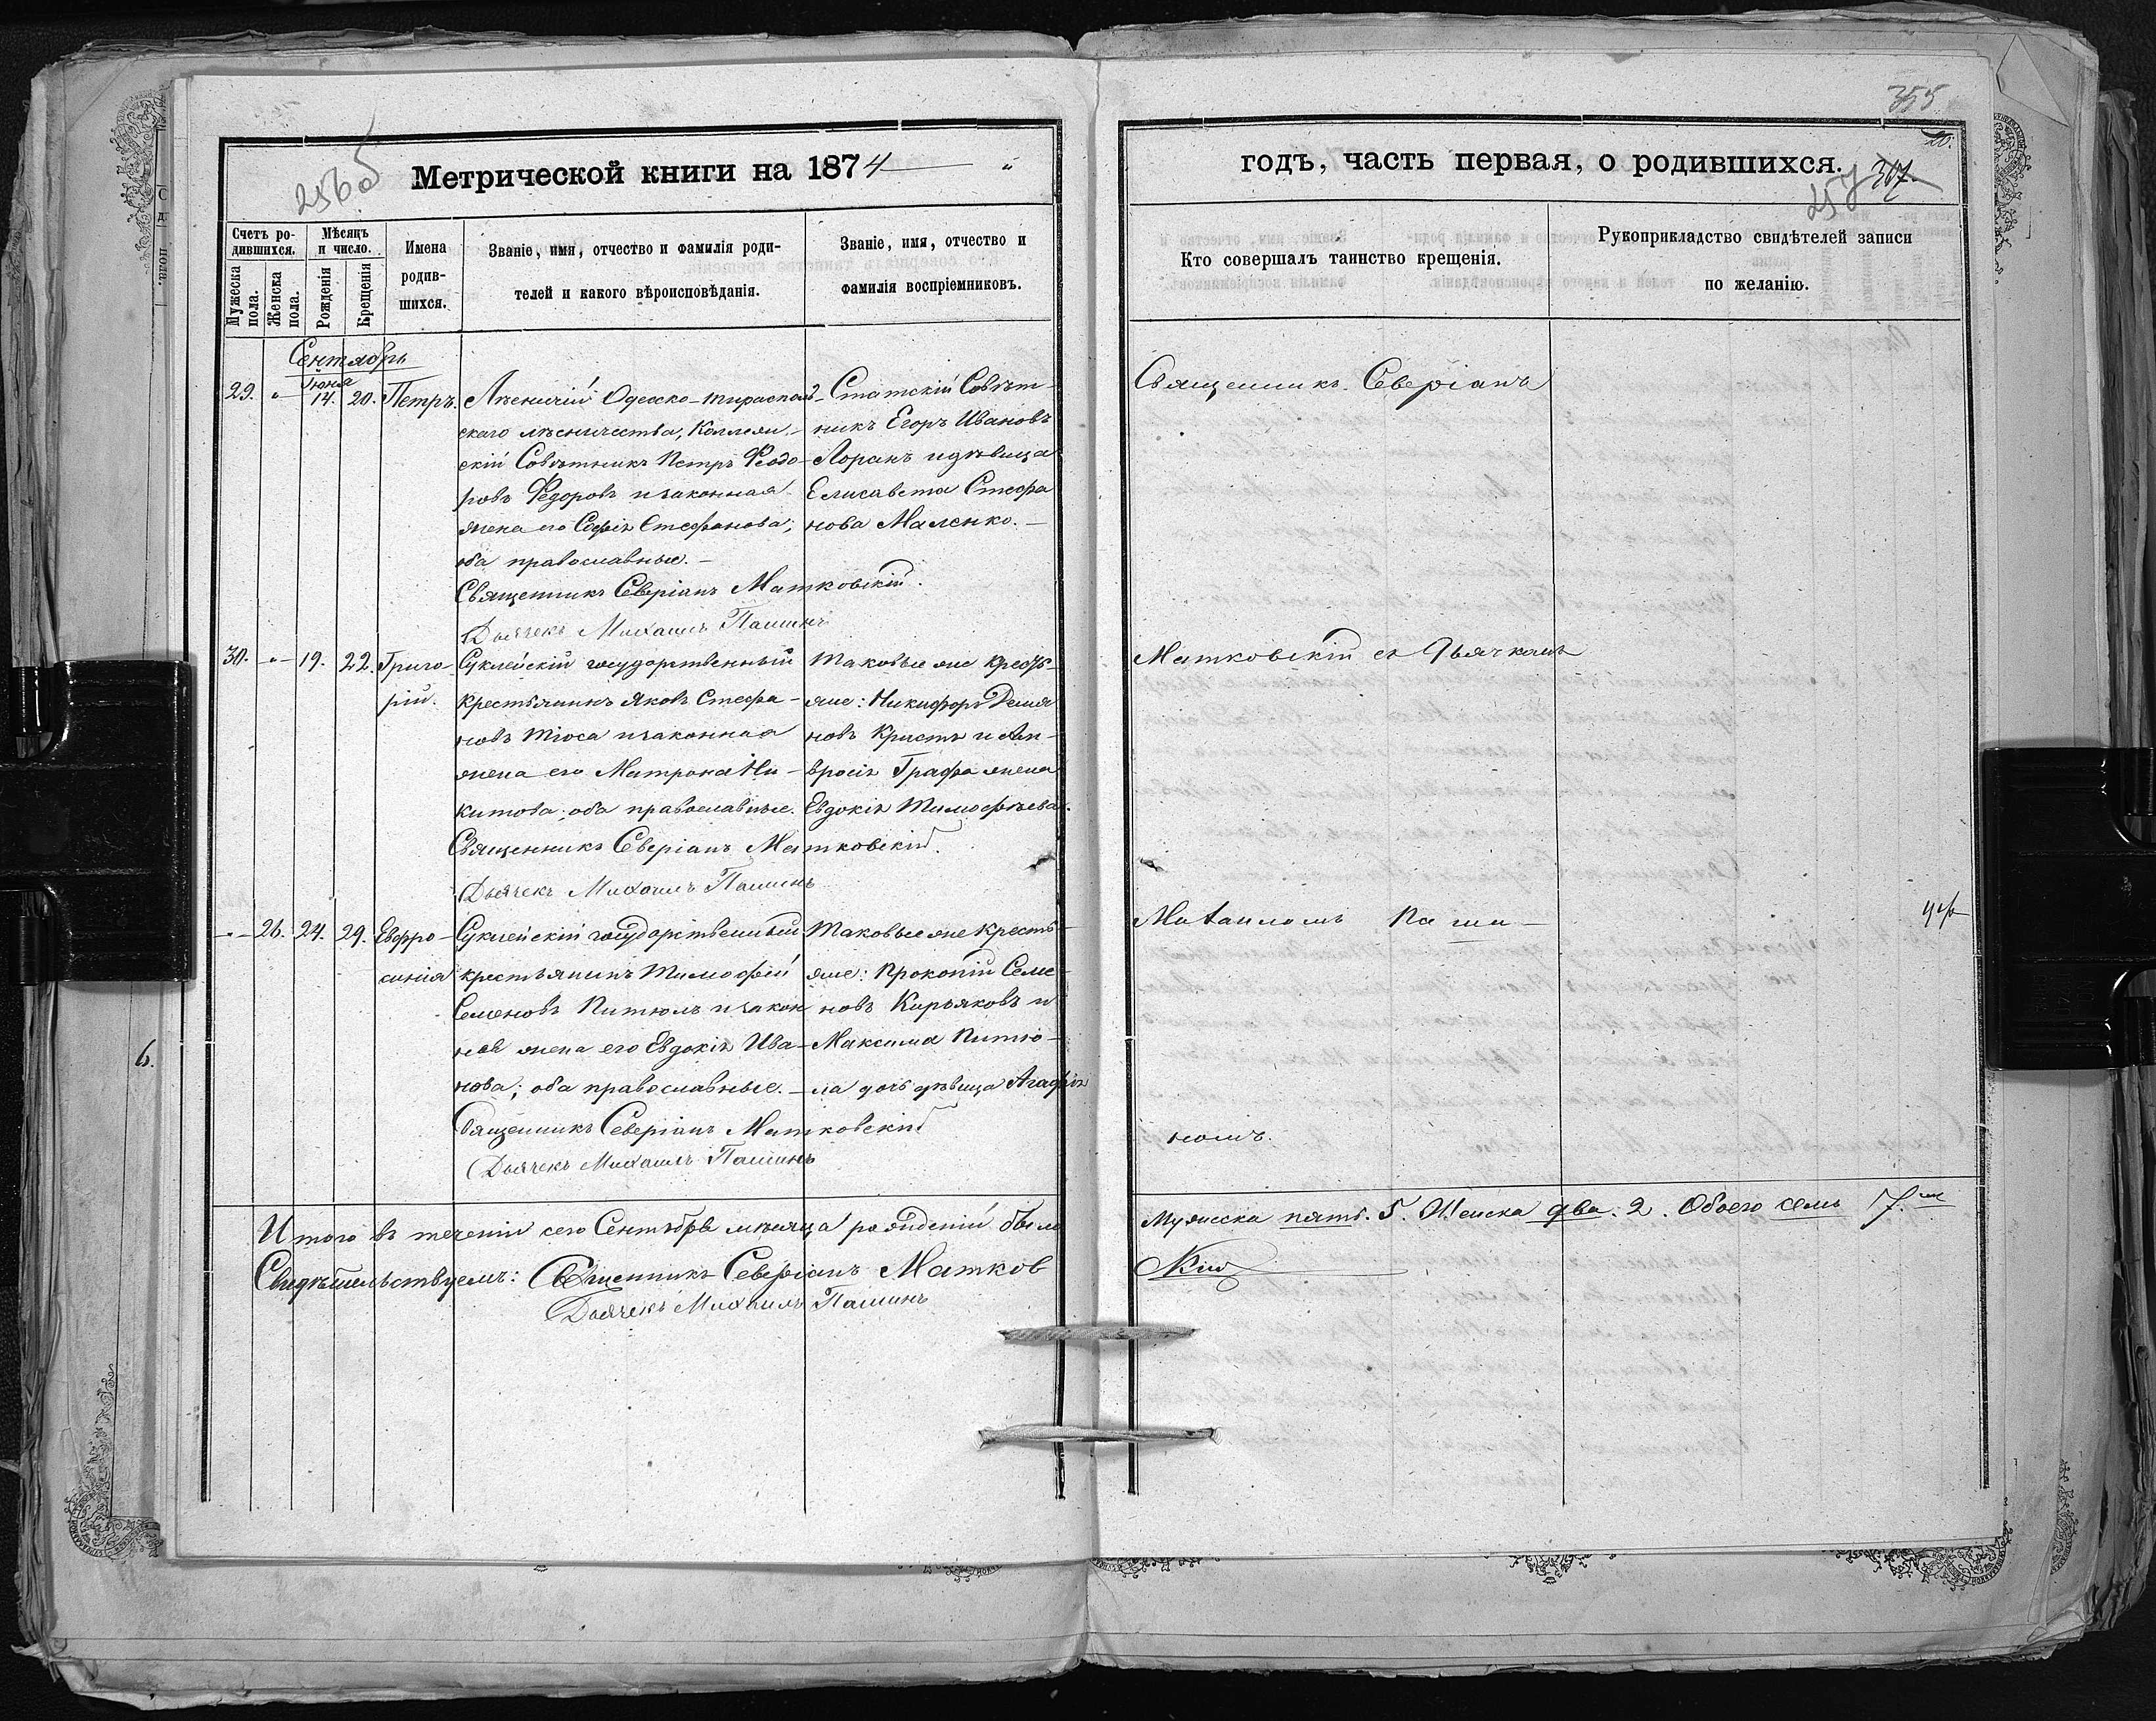 355
20.
256об
Метрической книги на 1874
годъ, часть первая, о родившихся.
257 307
Счетъ ро-
дившихся.
Мужеска
пола.
Женска
пола.
Мѣсяцъ
и число.
Рожденія
Крещенія
Имена
родив-
шихся.
Званіе, имя, отчество и фамилія роди-
телей и какого вѣроисповѣданія.
Званіе, имя, отчество и
фамилія воспріемниковъ.
Кто совершалъ таинство крещенія.
Рукоприкладство свидѣтелей записи
по желанію.
Сентябрь
Іюня
29. " 14. 20. Петръ.
Лѣсничій Одесско-тирасполь-
скаго лѣсничества, Коллеж-
скій Совѣтникъ Петръ Ѳеодо-
ровъ Ѳедоровъ и законная
жена его Софія Стефанова;
оба православные. –
Священникъ Северіанъ Матковскій.
Дьячекъ Михаилъ Пашинъ
Статскій Совѣт-
никъ Егоръ Ивановъ
Лоранъ и дѣвица
Елисавета Стефа
нова Маленко. –
Священникъ Северіанъ
30. " 19. 22. Григо-
рій.
Суклейскій государственный
крестьянинъ Яковъ Стефа-
новъ Тіоса и законная
жена его Матрона Ни-
китова; оба православные.
Священникъ Северіанъ Матковскій.
Дьячекъ Михаилъ Пашинъ
Таковые же кресть-
яне: Никифоръ Демія
новъ Кристя и Ам-
вросія Графа жена
Евдокія Тимофѣева.
Матковскій съ Дьячкомъ
" 26. 24. 29. Евфро-
синія
Суклейскій государственный
крестьянинъ Тимофѣй
Семеновъ Питюлъ и закон
ная жена его Евдокія Ива-
нова; оба православные. –
Священникъ Северіанъ Матковскій
Дьячекъ Михаилъ Пашинъ
Таковые же кресть-
яне: Прокопій Семе-
новъ Кирьяковъ и
Максима Питю-
ла дочь дѣвица Агафія
Михаиломъ Паши-
номъ.
Итого въ теченіи сего Сентября мѣсяца рожденій было
Мужеска пять. 5. Женска два. 2. Обоего семь 7.
Свидѣтельствуемъ: Священникъ Северіанъ Матков
скій
Дьячекъ Михаилъ Пашинъ
6.